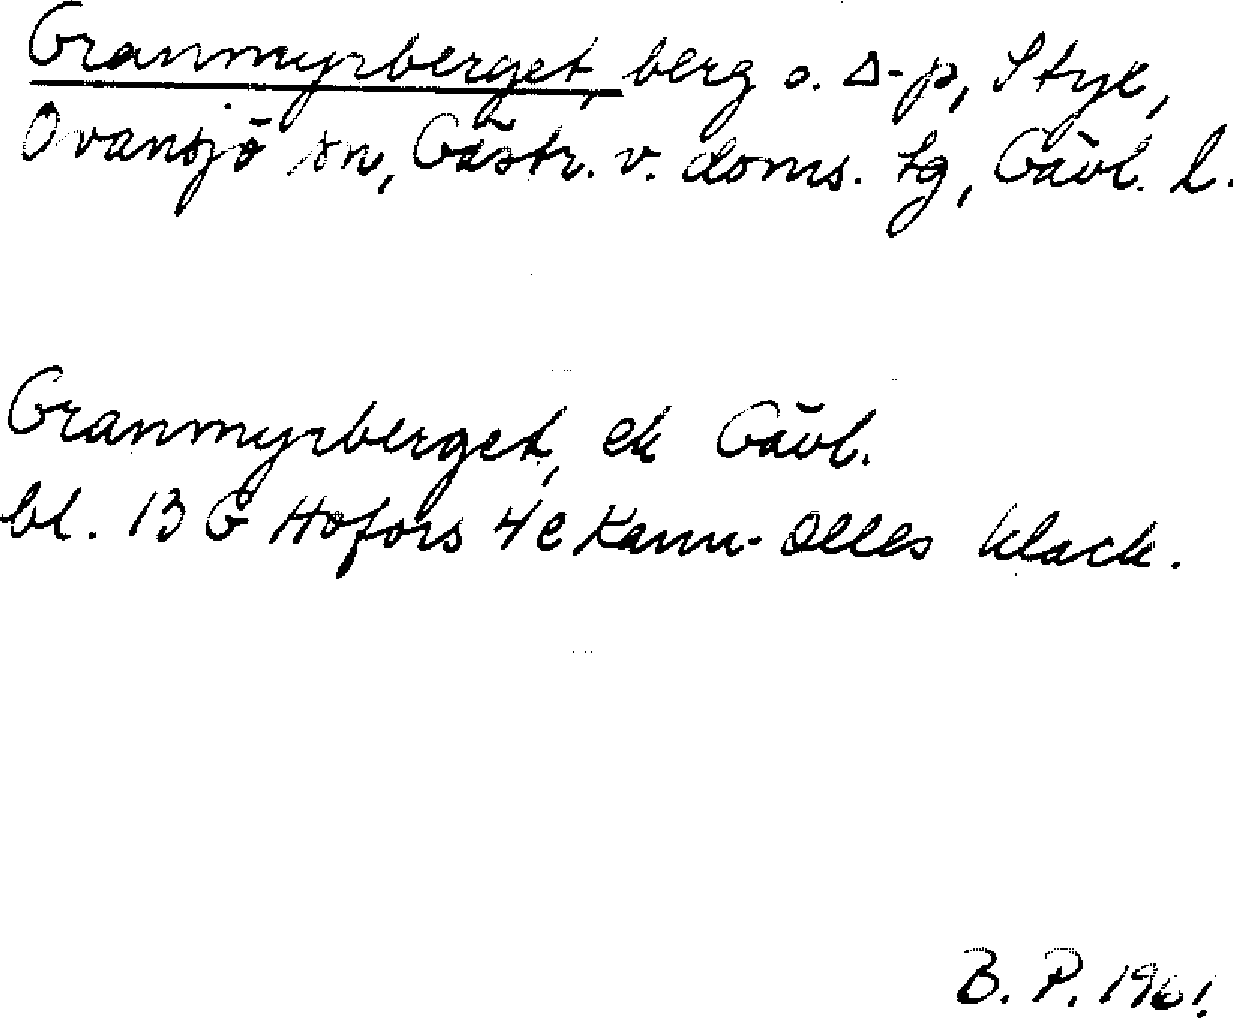 Granmyrberget, berg o. Δ-p, Stye,
Ovansjö sn, Gästr. v. doms. tg, Gävl. l.
Granmyrberget, ek Gävl.
bl. 13 G Hofors 4e Kann-Olles klack.
B. P. 1961.